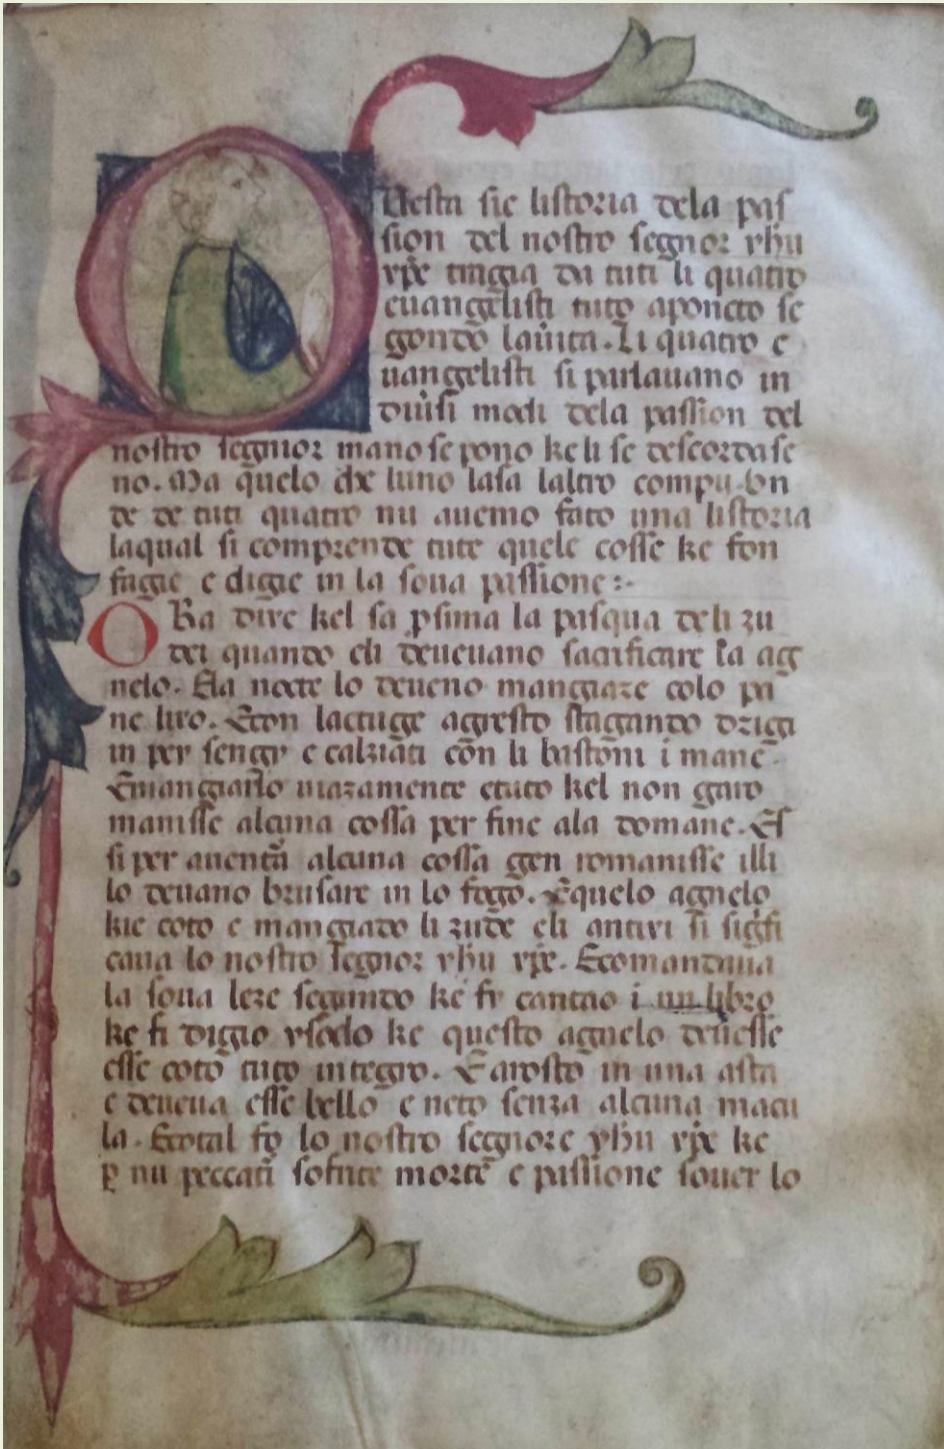 Questa sie listoria dela pas
sion del nostro segnor yhu
xpe tingia da tuti li quatro
euangelisti tuto aponcto se
gondo la uita. Li quatro e
uangelisti si parlauano in
diuisi modi dela passion del
nostro segnor ma no se pono ke li se descordase
no. Ma quelo che luno lasa laltro compu. On
de de tuti quatro nu auemo fato una listoria
laqual si comprende tute quele cosse ke fon
fagie e digie in la soua passione:-
ORa dire kel sa psima la pasqua de li zu
dei quando eli deueuano sacrificare la ag
nelo. Ela nocte lo deueno mangiare colo pa
ne liro. Econ lactuge agresto stagando driga
in per sengy e calziati con li bastoni i mane.
Emangiarlo uiazamente etuto kel non garo
manisse alcuna cossa per fine ala domane. Es
si per auentu alcuna cossa gen romanisse illi
lo deuano brusare in lo fogo. Equelo agnelo
kie coto e mangiado li zude eli antixi si sigfi
caua lo nostro segnor yhu xpe. Ecomandaua
la soua leze segundo ke fy cantao i un libro
ke fi digio ysodo ke questo agnelo deuesse
esse coto tuto integro. E arosto in una asta
e deueua esse bello e neto senza alcuna macu
la. Ecotal fo lo nostro segnore yhu xpe ke
p nu peccati sofrite morte e passione souer lo